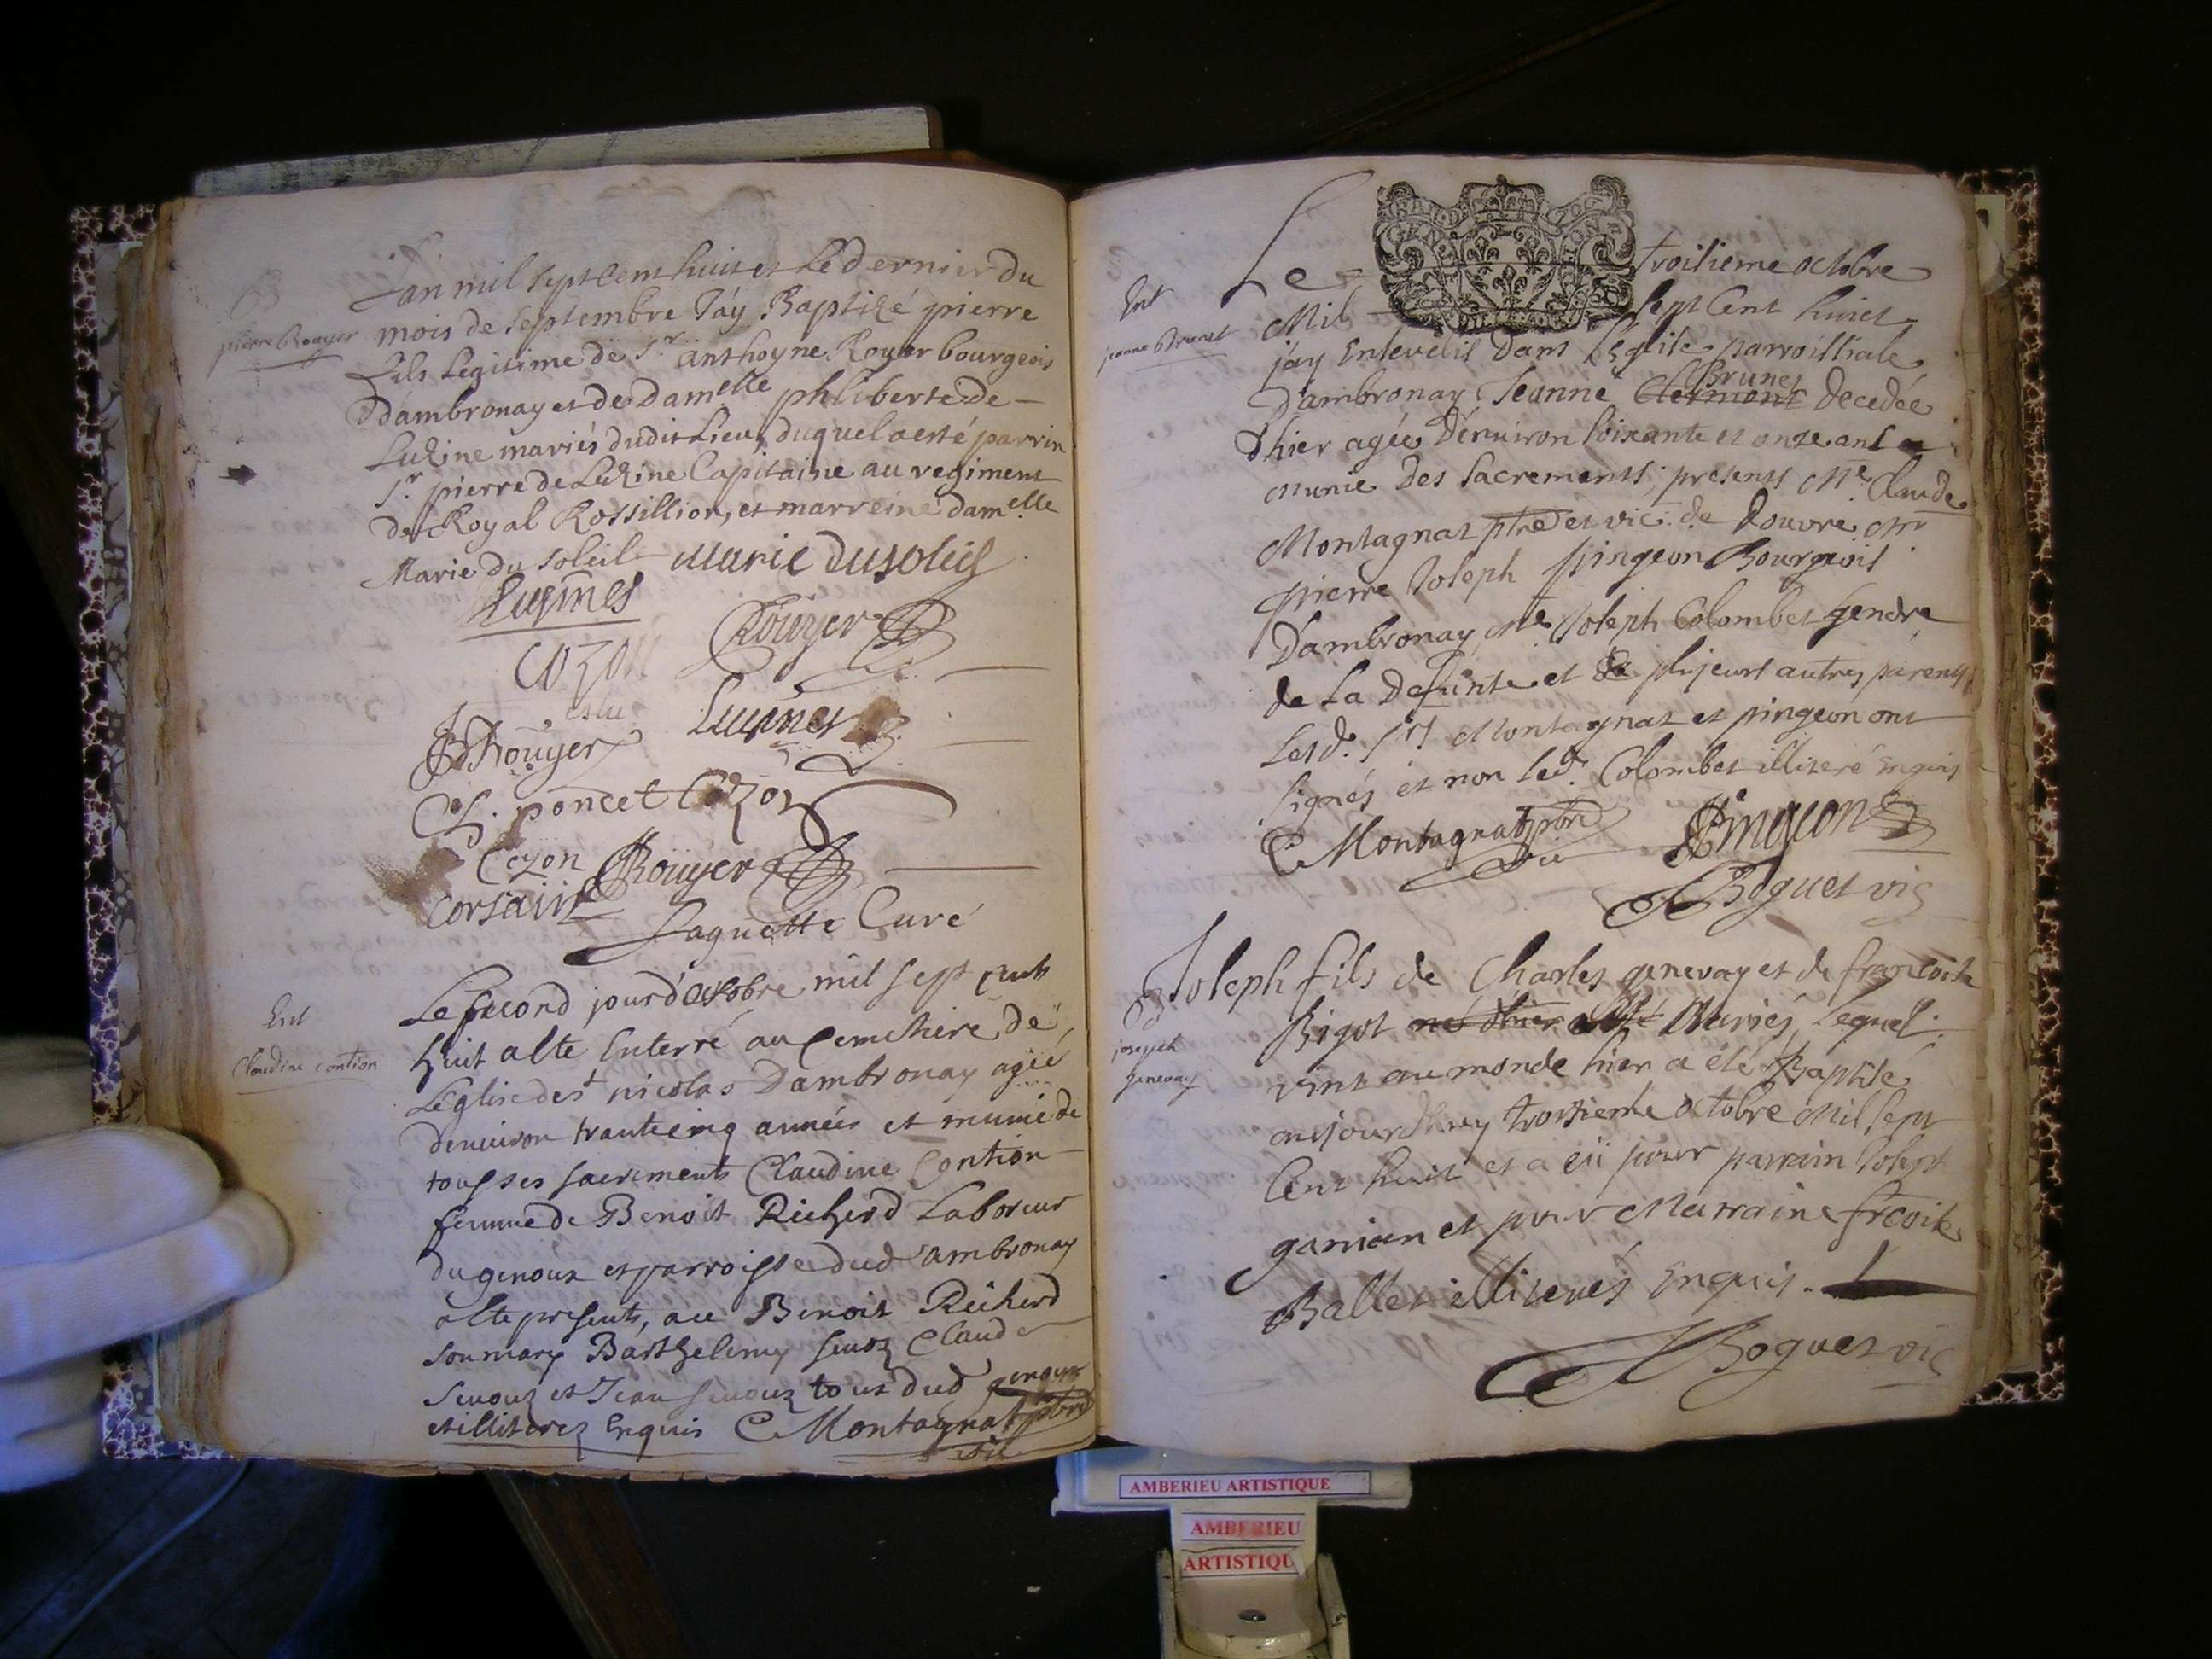 Bp
pierre Rouyer
L'an mil sept cent huit et Le dernier du
mois de septembre J'ay Baptizé pierre
fils Legitime de Sr. anthoyne Royer bourgeois
d'ambronay et de damelle phliberte de
Luzine mariés dudit Lieu, duquel a esté parrin
Sr pierre de Luzine Capitaine au regiment
de Royal Rossillion, et marreine damelle
Marie du soleil Marie dusoleil
Luyines
Cozon Rouyer
eslu
Rouyer Luyines
Ch. poncet Cozon
Cozon Rouyer
Corsain
Laguette Curé
Ent
Claudine contion
Le second jour d'octobre mil sept cents
huit a este Enterré au Cemetiere de
L'eglise de st nicolas Dambronay agée
denuiron trantecinq années et munie de
tous ses sacrements Claudine Contion
femme de Benoit Richerd Laboreur
du genoux et parroisse dud ambronay
este presents, Benoit Richerd
son mary Barthelemy Claude
et Jean tous dud genoux
et illiterez Enquis C Montagnat pbre
vic
Ent
jeanne Brunet
Le troisieme octobre
Mil sept Cent huict
j'ay Enseveli dans L'Eglise parroissiale
D'ambronay Jeanne Clermont Brunet decedée
d'hier agée D'enuiron soixante et onze ans
munie des sacrements; presents Me. Claude
Montagnat ptre et vic. de Douvre Mr
pierre Joseph pingeon Bourgeois
D'ambronay Me Joseph Colombet gendre
de La Defunte et de plusieurs autres parents
Lesd. Srs Montagnat et pingeon ont
signés et non led. Colombet illiteré enquis
C Montagnat pbre Pingeon
vic
Boguet vic
Bp
joseph
genevay
Joseph fils de Charles genevay et de francoise
Bigot né d'hier Mariés, Lequel
vint au monde hier a été Baptisé
aujourdhuy troisieme octobre Mil sept
Cent huit et a eü pour parrain Joseph
et pour Marraine
Ballet illiterés Enquis.
Boguet vic
AMBERIEU ARTISTIQUE
AMBERIEU
ARTISTIQU